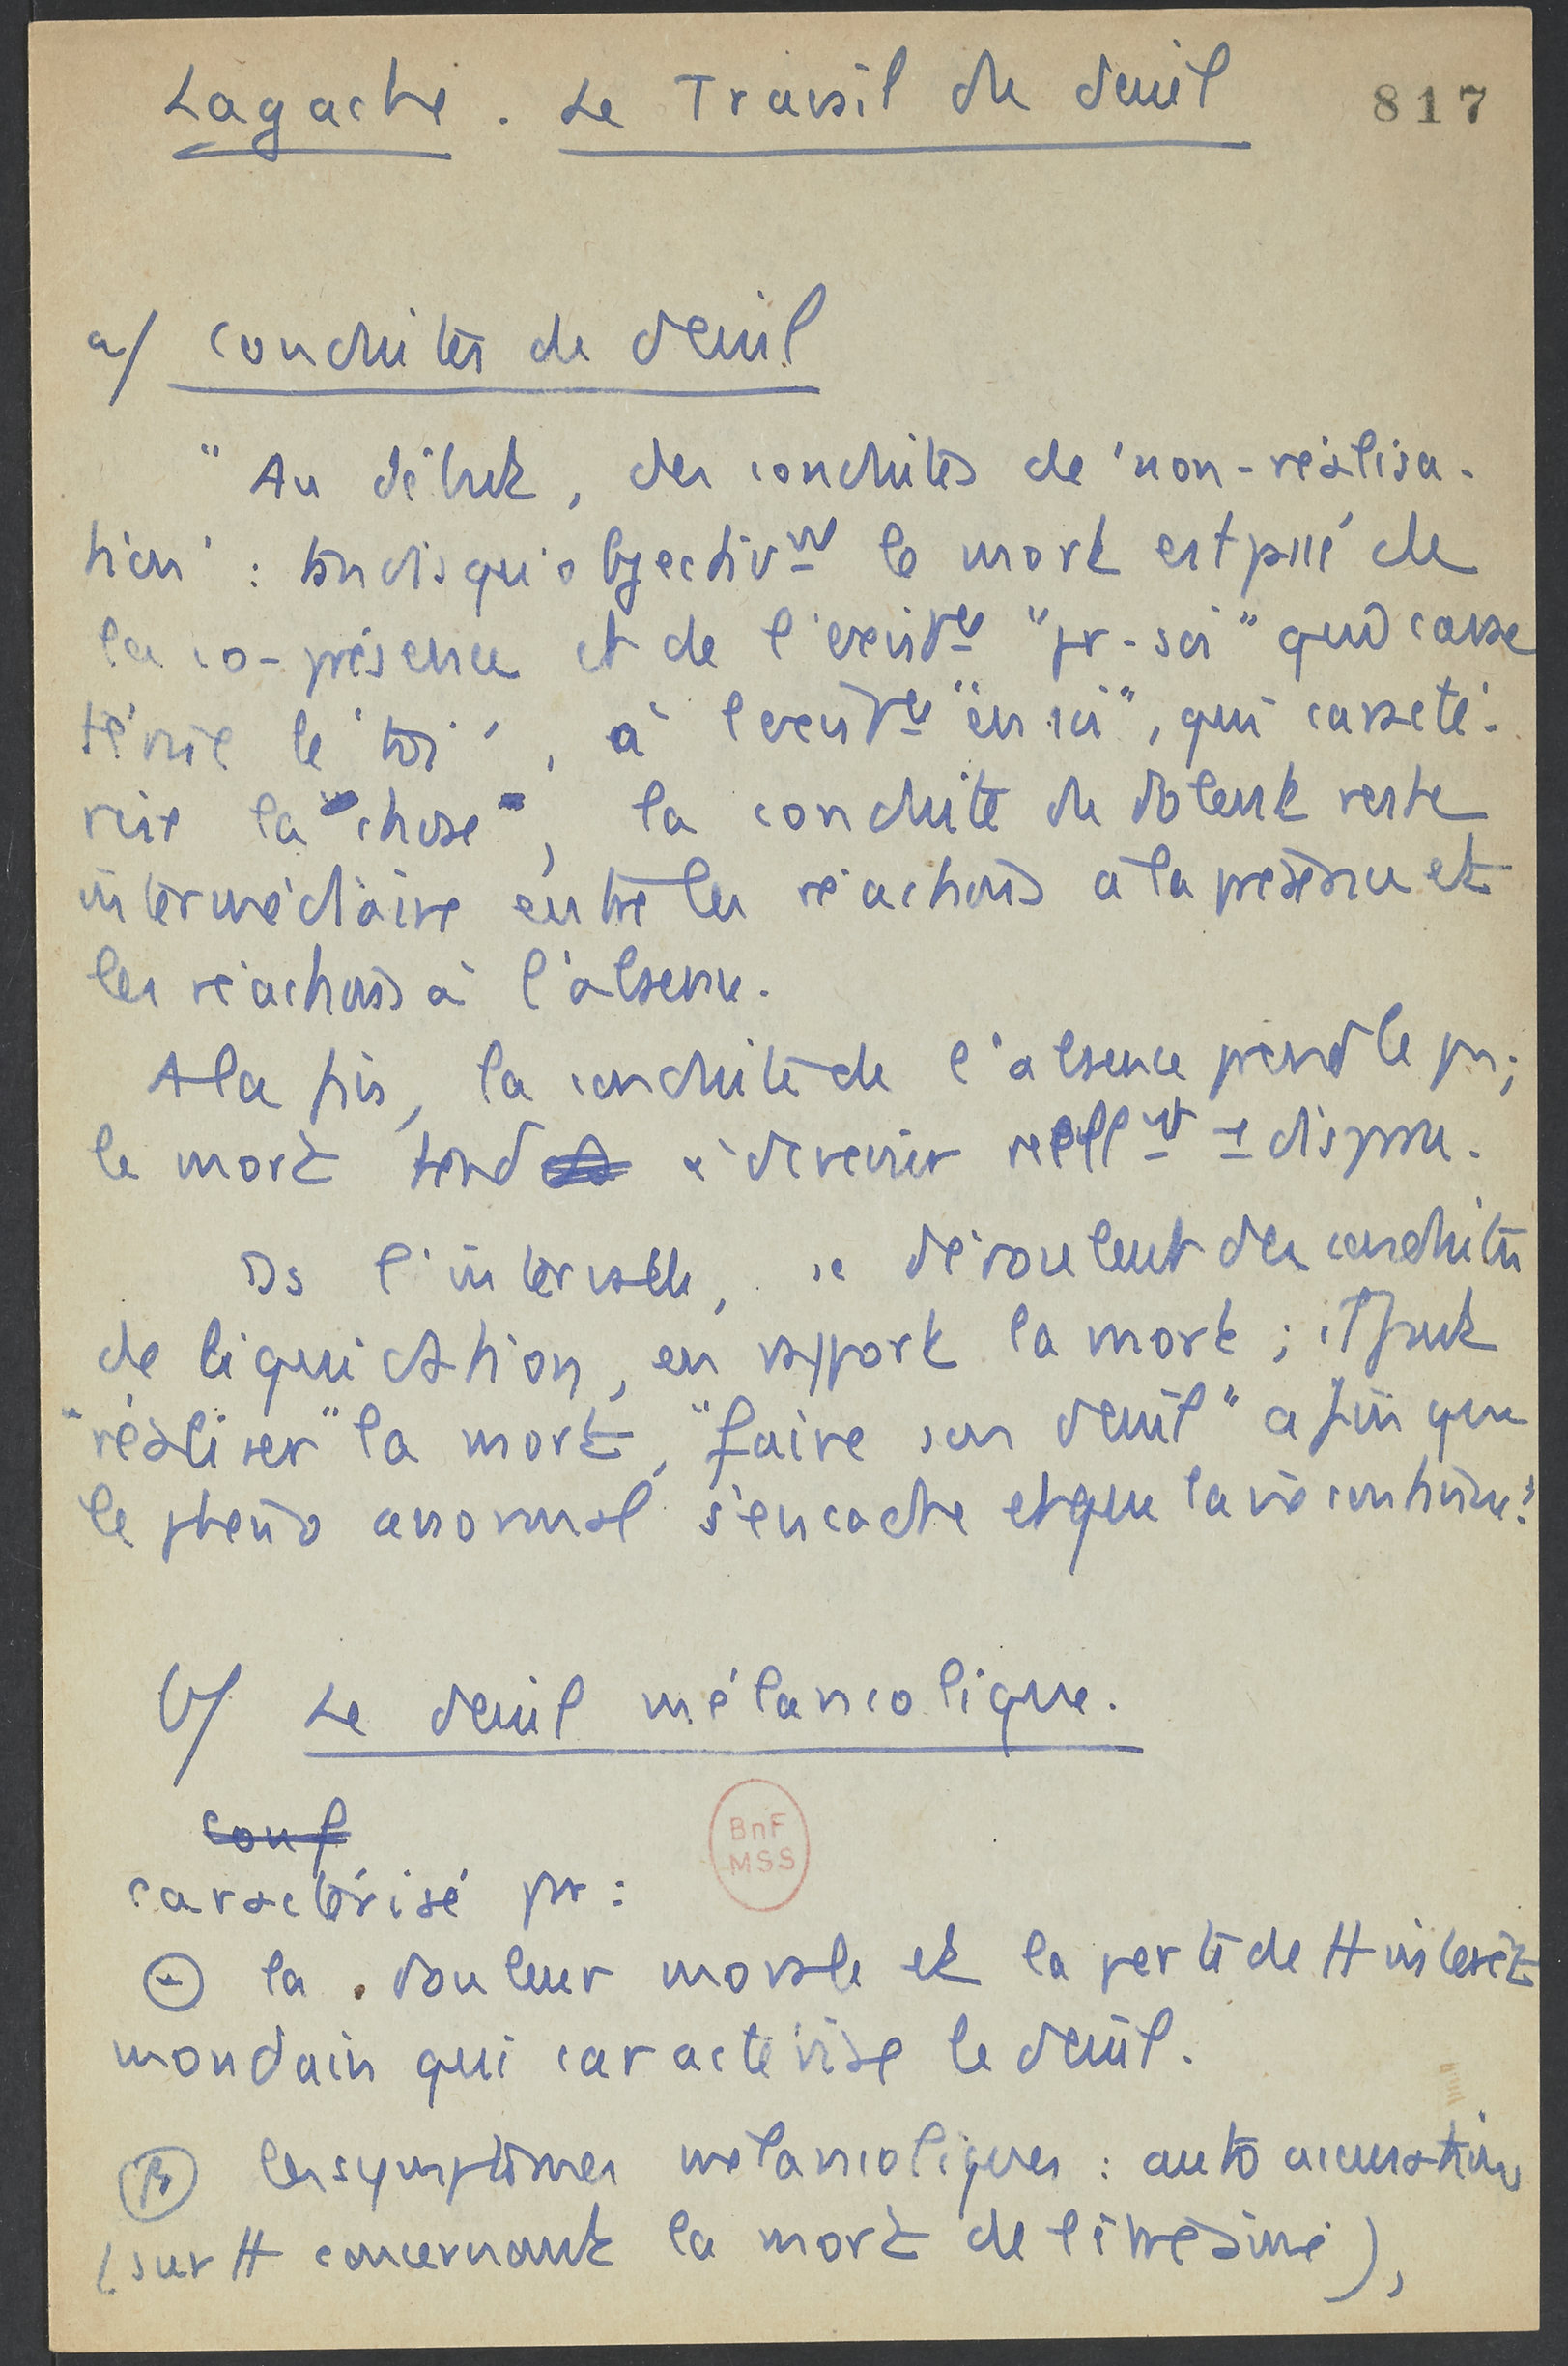 Lagache. Le Travail du deuil
817
a/ conduites de deuil
" Au début, des conduites de 'non-réalisa-
tion' : tandis qu'objectivnt le mort est passé de
la co-présence et de l'existce "pr-soi" qui carac
térise le 'toi', à l'existce "en soi", qui caracté-
rise la "chose", la conduite du dolent reste
intermédiaire entre les réactions à la présence et
les réactions à l'absence.
A la fin, la conduite de l'absence prend le pas;
le mort tend à devenir réellnt disparu.
Ds l'intervalle, se déroulent des conduites
de liquidation, en rapport la mort ; il faut
"réaliser" la mort, "faire son deuil" afin que
le phéno anormal s'encadre et que la vie continue."
b/ Le deuil mélancolique.
conf
BnF
MSS
caractérisé par :
α la douleur morale et la perte de tt intérêt
mondain qui caractérise le deuil.
β les symptômes mélancoliques : auto accusations
(surtt concernant la mort de l'être aimé),